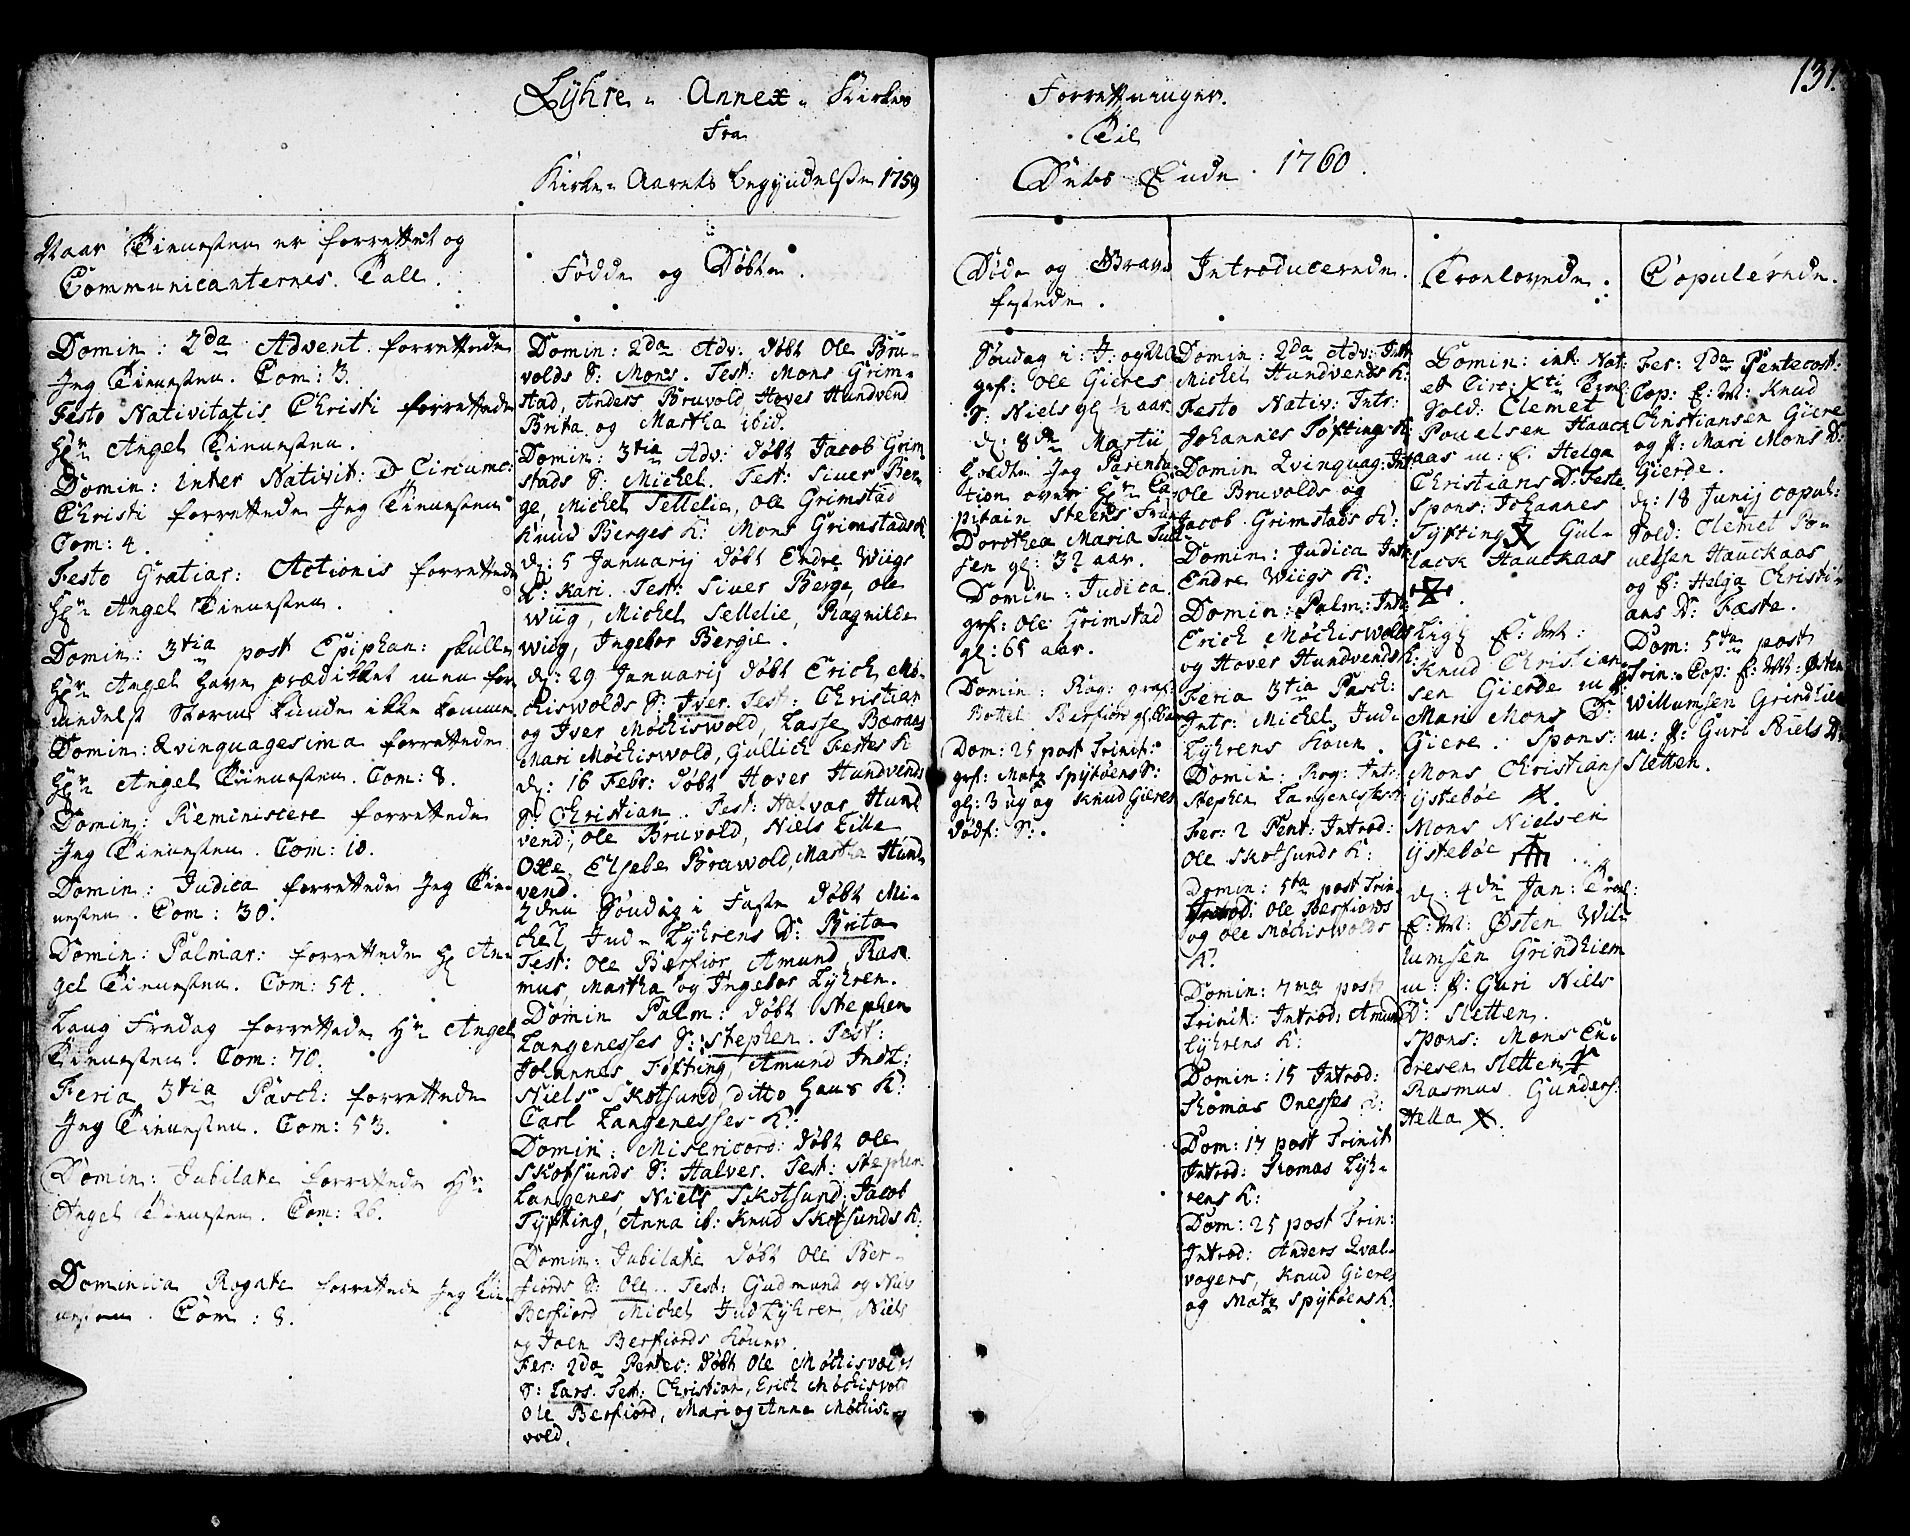 131.
Lÿhre Annex Kirkes Forrettninger.
Fra Til
Kirke Aarets begyndelse 1759 Dets Ende 1760.
Naar Tienesten er forrettet og
Communicanternes Tall.
Domin: 2da Advent forrettede
Jeg Tienesten. Com: 3.
Festo Nativitatis Christi forrettede
Hr Angel Tienesten.
Domin: inter Nativit: & Circumc:
Christi forrettede Jeg Tienesten
Com: 4.
Festo Gratiar: Actionis forrettede
Hr Angel Tienesten.
Domin: 3tia post Epiphan: skulle
Hr Angel have prædikket men for
medelst Storm kunde ikke komme
Domin: Qvinquagesima forrettede
Hr Angel Tienesten. Com: 8.
Domin: Reminiscere forrettede
Jeg Tienesten. Com: 10.
Domin: Judica forrettede Jeg Tie-
nesten. Com: 30.
Domin: Palmar: forrettede Hr An-
gel Tienesten. Com: 54.
Lang Fredag forrettede Hr Angel
Tienesten. Com: 70.
Feria 3tia Pasch: forrettede
Jeg Tienesten. Com: 53.
Domin: Jubilate forrettede Hr
Angel Tienesten. Com: 26.
Dominica Rogate forrettede Jeg Tie-
nesten. Com: 8.
Fødde og Døbte.
Domin: 2da Adv: døbt Ole Bru-
volds S: Mons. Test: Mons Grim-
stad, Anders Bruvold Hoves Hundvend
Brita og Martha ibid.
Domin: 3tia Adv: døbt Jacob Grim
stads S: Michel. Test: Siver Ber
ge, Michel Sellelie, Ole Grimstad
Knud Berges K: Mons Grimstads K
d: 5 Januarij døbt Endre Wiigs
D: Kari. Test: Siver Berge, Ole
Wiig, Michel Sellelie, Ragnilde
Wiig, Ingebor Bergie.
d: 29 Januarij døbt Erich Mø-
chiswolds S: Iver. Test: Christian
og Iver Møchiswold, Lasse Bærøes
Mari Møchiswold, Gullich Festes K
d: 16 Febr: døbt Hover Hundvends
S: Christian. Test: Halvor Hund
vend, Ole Bruvold, Niels Lille
Oxe, Elsebe Børawold, Martha Hund
vend.
2den Søndag i Faste døbt Mi-
chel Jud- Lÿhrens D: Brita
Test: Ole Berfior, Amund, Ras
mus, Martha og Ingebor Lÿhren.
Domin Palm: døbt Stephen
Langenesses S: Stephen. Test:
Johannes Tøfting, Amund
Niels Skotsund ditto hans K:
Carl Langenesses K:
Domin: Misericord: døbt Ole
Skotsunds S: Halver. Test: Stephen
Langenes, Niels Skotsund, Jacob
Tÿfting, Anna ib: Knud Skotsunds K:
Domin: Jubilate døbt Ole Ber-
fiords S: Ole. Test: Gudmund og Niels
Berfiord, Michel Jud Lÿhren, Niels
og Joen Berfiords Koner.
Fer: 2da Pentec: døbt Ole Møchisvolds
S: Lars. Test: Christian, Erich Møchisvold
Ole Berfiord, Mari og Anne Møchis
vold.
Døde og Begrav
festede.
Søndag i: J: og
grf: Ole Gieres
S: Niels gl ½ aar.
d: 8de Martij
holdte Jeg Parenta-
tion over Hr Ca-
pitain Steens Frue
Dorothea Maria Tull-
sen gl: 32 aar.
Domin: Judica
grf: Ole Grimstad
gl: 65 aar.
Domin: Rog: graf:
Bottel Berfiord gl:
Dom: 25 post Trinit:
grf: Matz Spÿtøens S:
gl: 3 ug og Knud Gieres
dødf: S:.
Introducerede.
Domin: 2da Adv: Intr
Michel Hundvends K:
Festo Nativ: Intr:
Johannes Tøftings K:
Domin Qvinquag: Int
Ole Bruvolds og
Jacob Grimstads K:
Domin: Judica Int
Endre Wiigs K:
Domin: Palm: Int
Erich Møchiswolds
og Hover Hundvends K:
Feria 3tia Pasch:
Intr: Michel Jud-
Lÿhrens Kone.
Domin: Rog: Intr:
Stephen Langeness K:
Fer: 2 Pent: Introd:
Ole Skotsunds K:
Domin: 5ta post Trin-
Introd: Ole Berfiords
og Ole Møchiswolds
K:
Domin: 7ma post
Trinit: Introd: Amund
Lÿhrens K:
Domin: 15 Introd:
Thomas Onesses K:
Dom: 17 post Trinit
Introd: Thomas Lÿh-
rens K:
Dom: 25 post Trin:
Introd: Anders Qval-
vogens, Knud Gieres
og Matz Spÿtøens K:
Troelovede.
Domin: int: Nat:
et Circ: Xti Troel:
Sold: Clemet
Pouelsen Hauck
aas m: P: Helga
Christians D: Feste
Spons: Johannes
Tÿfting Gul-
lack Hauckaas
Ligl E: M:
Knud Christian
sen Gierde m P:
Mari Mons D:
Giere. Spons:
Mons Christians
ÿstebøe
Mons Nielsen
ÿstebøe
d: 4de Jan: Troel:
E: M: Østen Wil-
lumsen Grindhiem
m: P: Guri Niels
D: Sletten.
Spons: Mons En-
dresen Sletten
Rasmus Gunders:
Hella
Copulerede.
Fer: 2da Pentecost:
Cop: E: M: Knud
Christiansen Giere
og P: Mari Mons D:
Gierde.
d: 18 Junij copul:
Sold: Clemet Po-
uelsen Hauckaas
og P: Helja Christi-
ans D: Fæste.
Dom: 5te post
Trin: Cop: E: M: Østen
Willumsen Grindhiem
m: P: Guri Niels D:
Sletten.